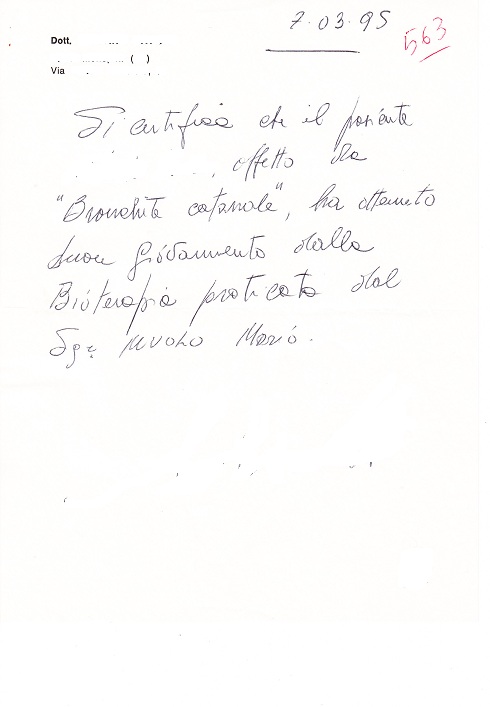 7.03.95
563
Dott.
( )
Via
Si certifica che il paziente
, affetto da
"Bronchite catarrale", ha ottenuto
buon giovamento dalla
Bioterapia praticata dal
Sg: Mario.